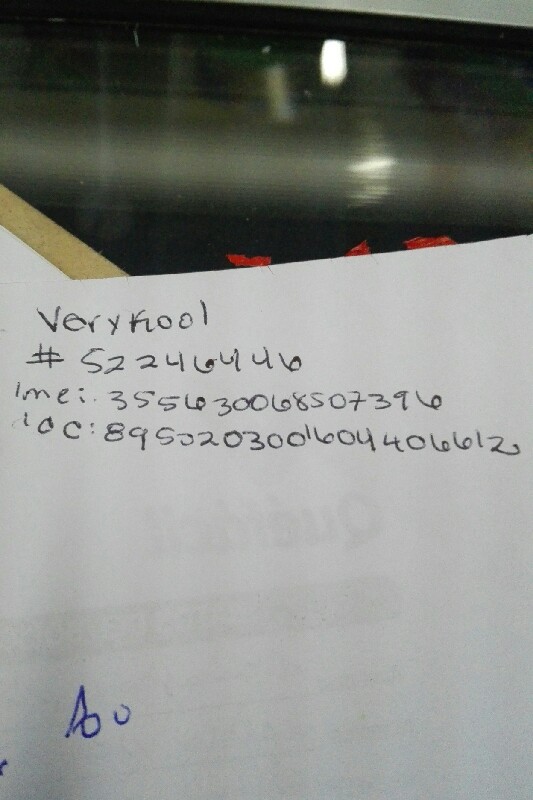 Verykool
# 52246446
Imei: 355630068507396
ICC: 8950203001604406612